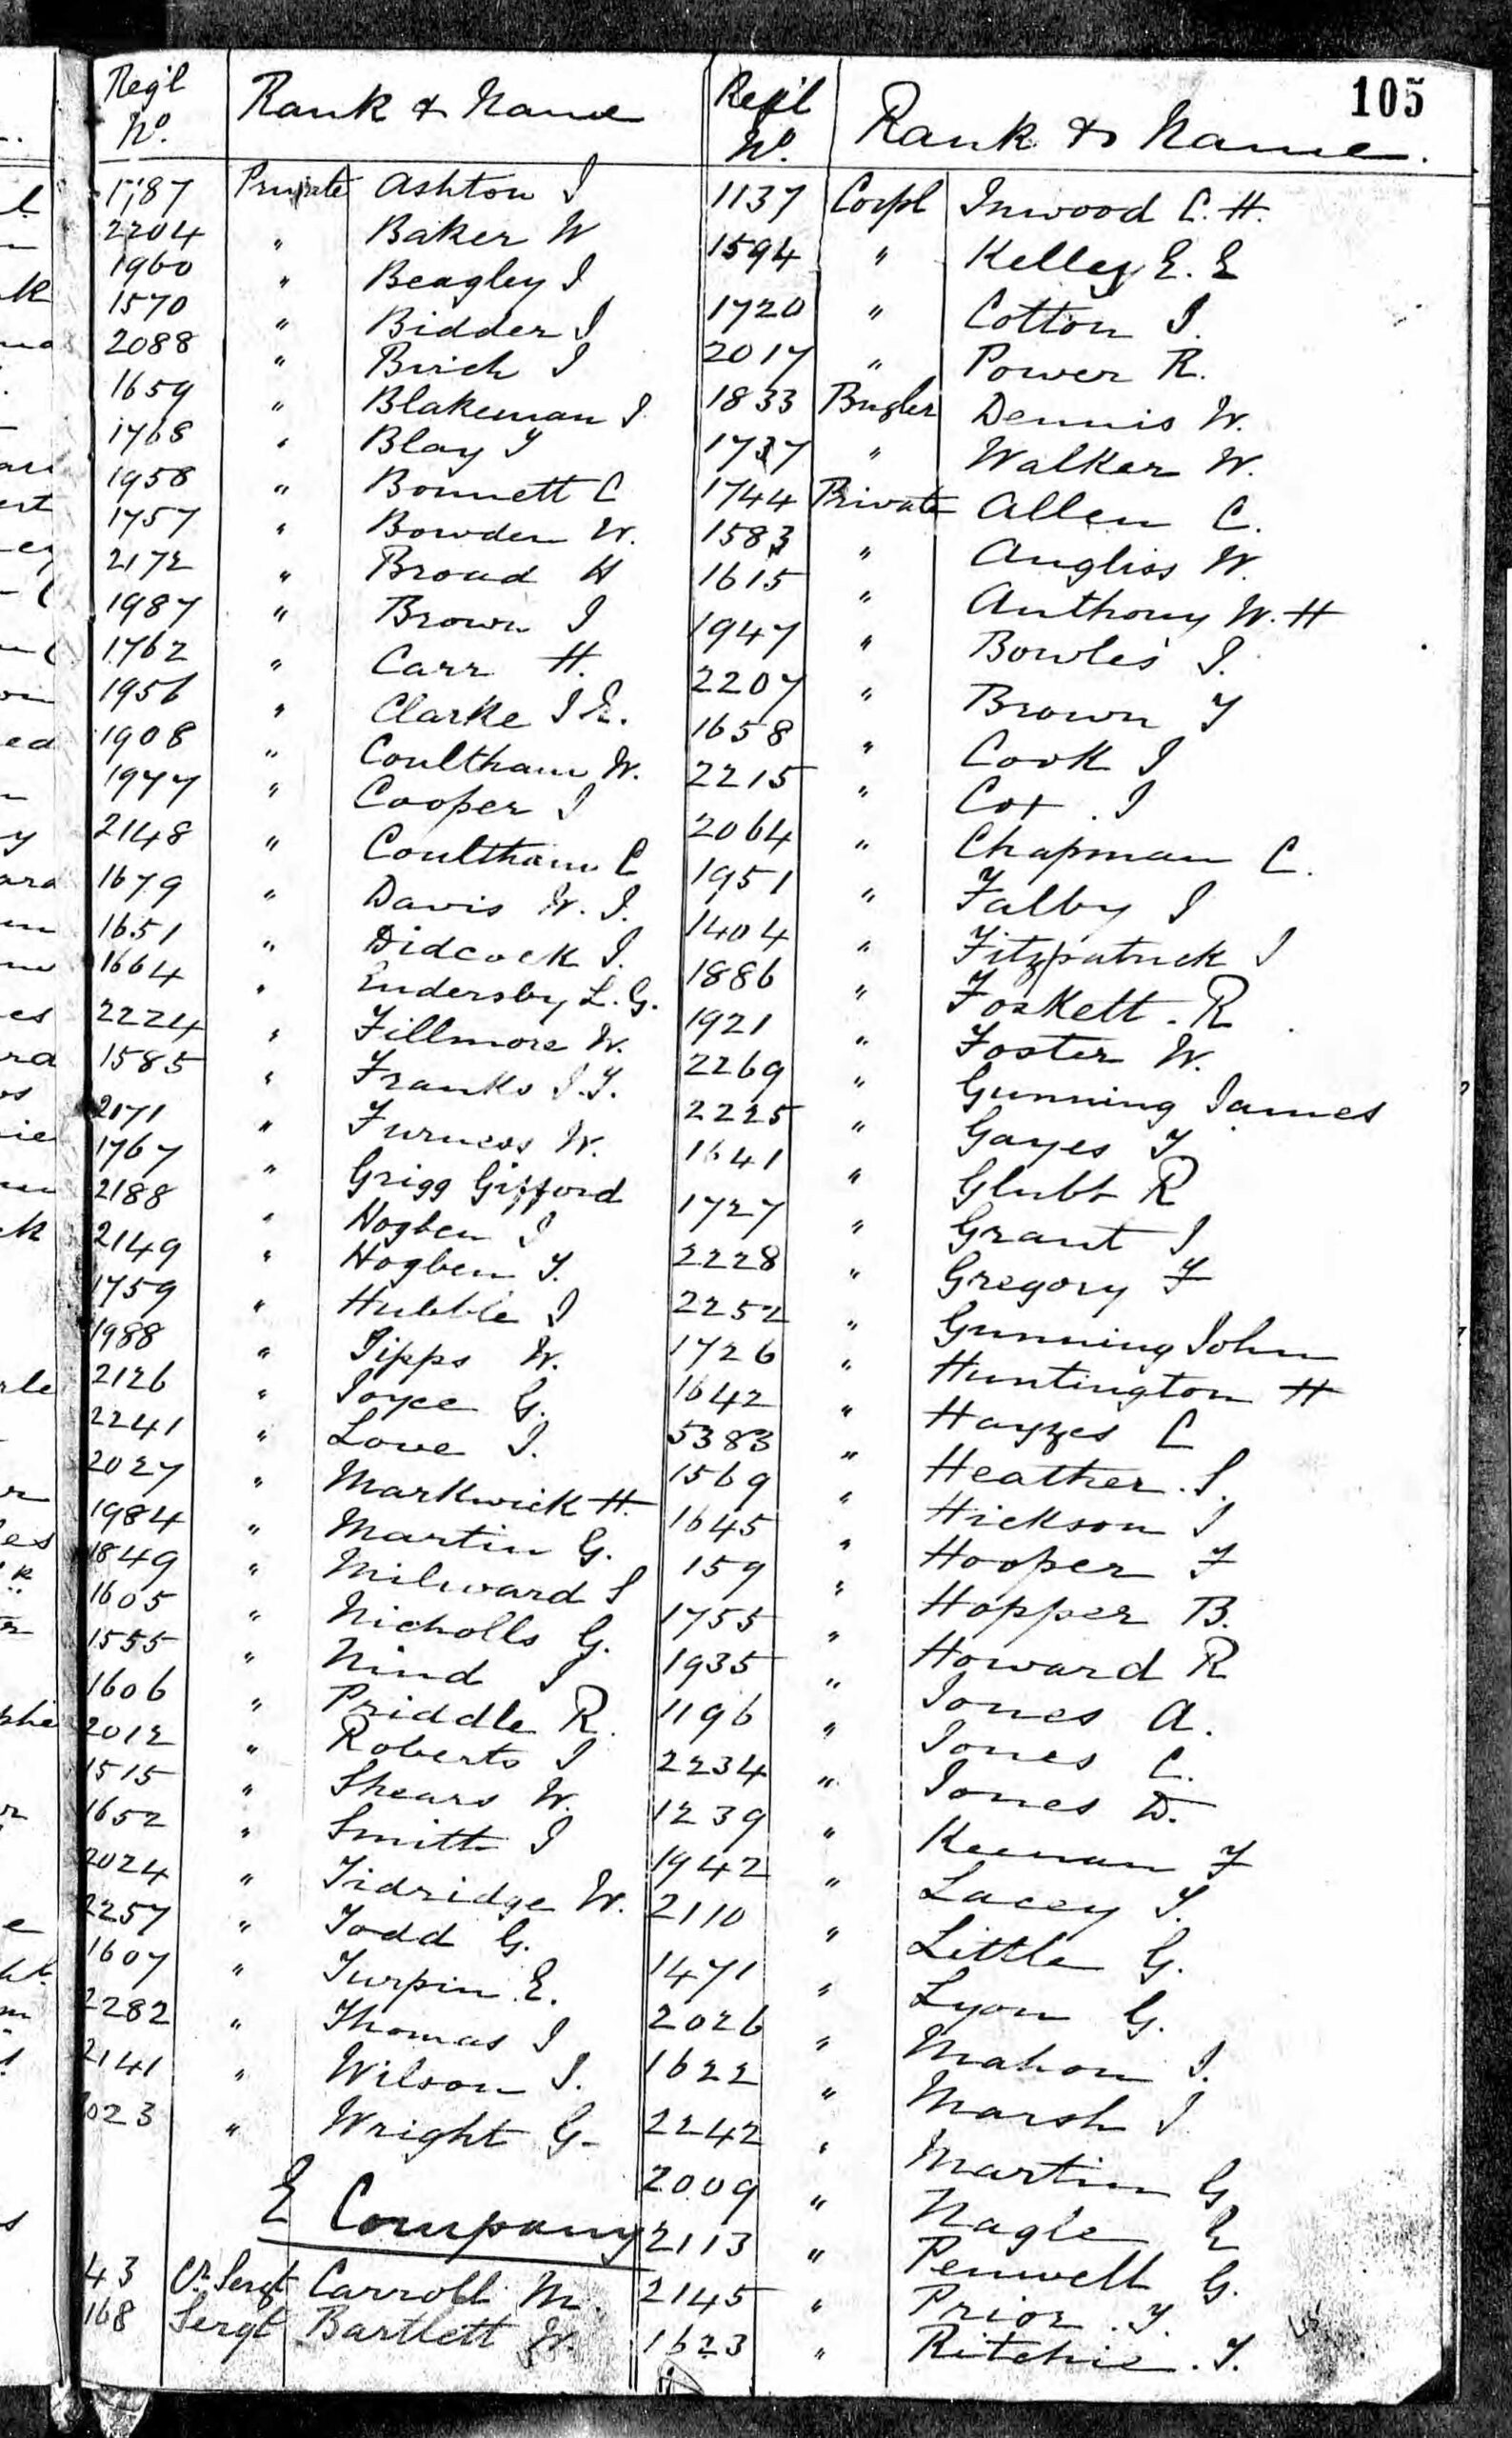 105
Reg'l No. Rank & Name
1787 Private Ashton J
2204 " Baker W
1960 " Beagley J
1570 " Bidder J
2088 " Birch J
1659 " Blakeman J
1768 " Blay T
1958 " Bonnett C
1757 " Bowden W.
2172 " Broad H
1987 " Brown J
1762 " Carr H.
1956 " Clarke J E.
1908 " Coultham W.
1977 " Cooper J
2148 " Coultham C
1679 " Davis W. J.
1651 " Didcock J.
1664 " Endersby L. G.
2224 " Fillmore W.
1585 " Franks J. T.
2171 " Furness W.
1767 " Grigg Gifford
2188 " Hogben J
2149 " Hogben T.
1759 " Hubble J
1988 " Jipps W.
2126 " Joyce G.
2241 " Love J.
2027 " Markwick H.
1984 " Martin G.
1849 " Milward S
1605 " Nicholls G.
1555 " Nind J
1606 " Priddle R.
2012 " Roberts J
1515 " Shears W.
1652 " Smith J
2024 " Tidridge W.
2257 " Todd G.
1607 " Turpin E.
2282 " Thomas J
2141 " Wilson J.
023 " Wright G-
E Company
43 Cr. Sergt Carroll M.
168 Sergt Bartlett W.
Reg'l No. Rank & Name.
1137 Corpl Inwood C. H.
1594 " Kelley E. E
1720 " Cotton J.
2017 " Power R.
1833 Bugler Dennis W.
1737 " Walker W.
1744 Private Allen C.
1583 " Angliss W.
1615 " Anthony W. H
1947 " Bowles J.
2207 " Brown T
1658 " Cook J
2215 " Cox . J
2064 " Chapman C.
1951 " Falby J
1404 " Fitzpatrick J
1886 " Foskett . R
1921 " Foster W.
2269 " Gunning James
2225 " Gayes T
1641 " Glubb R
1727 " Grant J
2228 " Gregory F
2252 " Gunning John
1726 " Huntington H
1642 " Hayzes C
5383 " Heather . S.
1569 " Hickson J
1645 " Hooper F
159 " Hopper B.
1755 " Howard R
1935 " Jones A.
1196 " Jones C.
2234 " Jones D.
1239 " Keenan F
1942 " Lacey T.
2110 " Little G.
1471 " Lyon G.
2026 " Mahon J.
1622 " Marsh J
2242 " Martin G
2009 " Nagle
2113 " Penwell G.
2145 " Prior . T.
1623 " Ritchie . T.